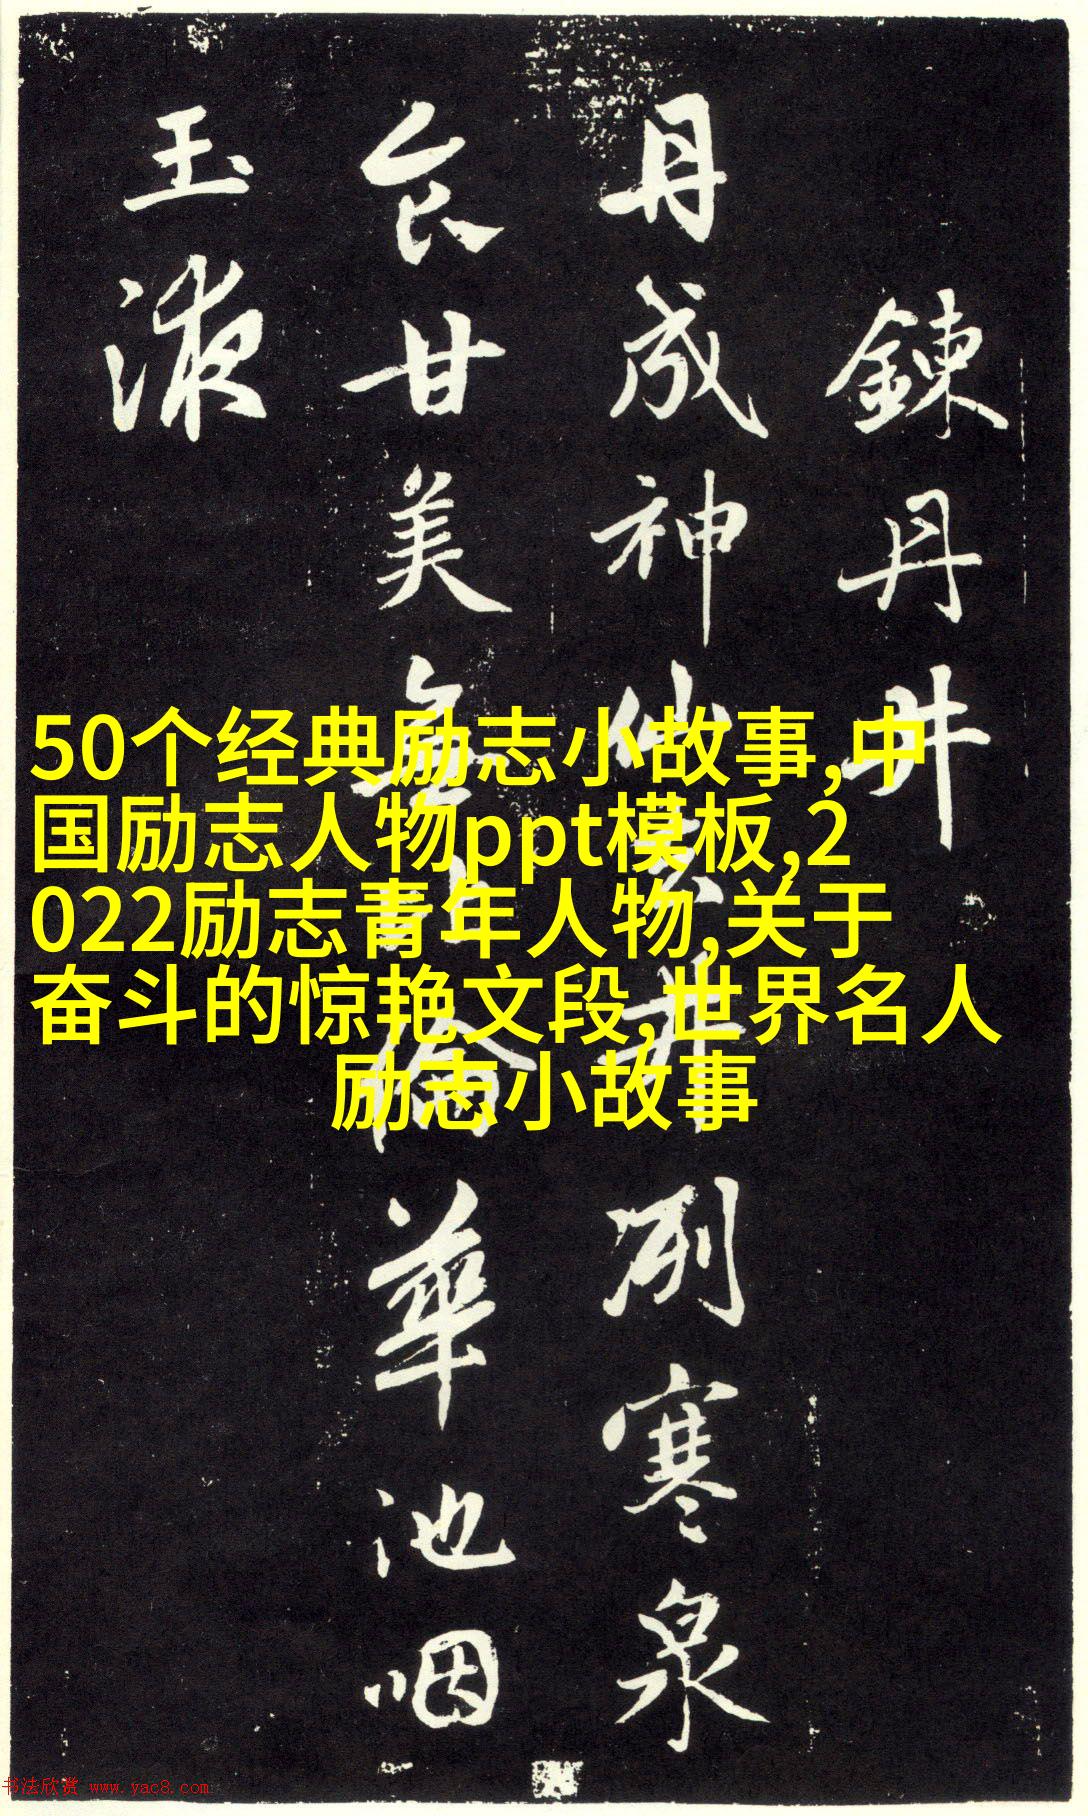 鍊丹井
丹成神仙去井冽寒泉
食甘美無倫華池咽
玉液
50个经典励志小故事,中
国励志人物ppt模板,2
022励志青年人物,关于
奋斗的惊艳文段,世界名人
励志小故事
书法欣赏 www.yac8.com